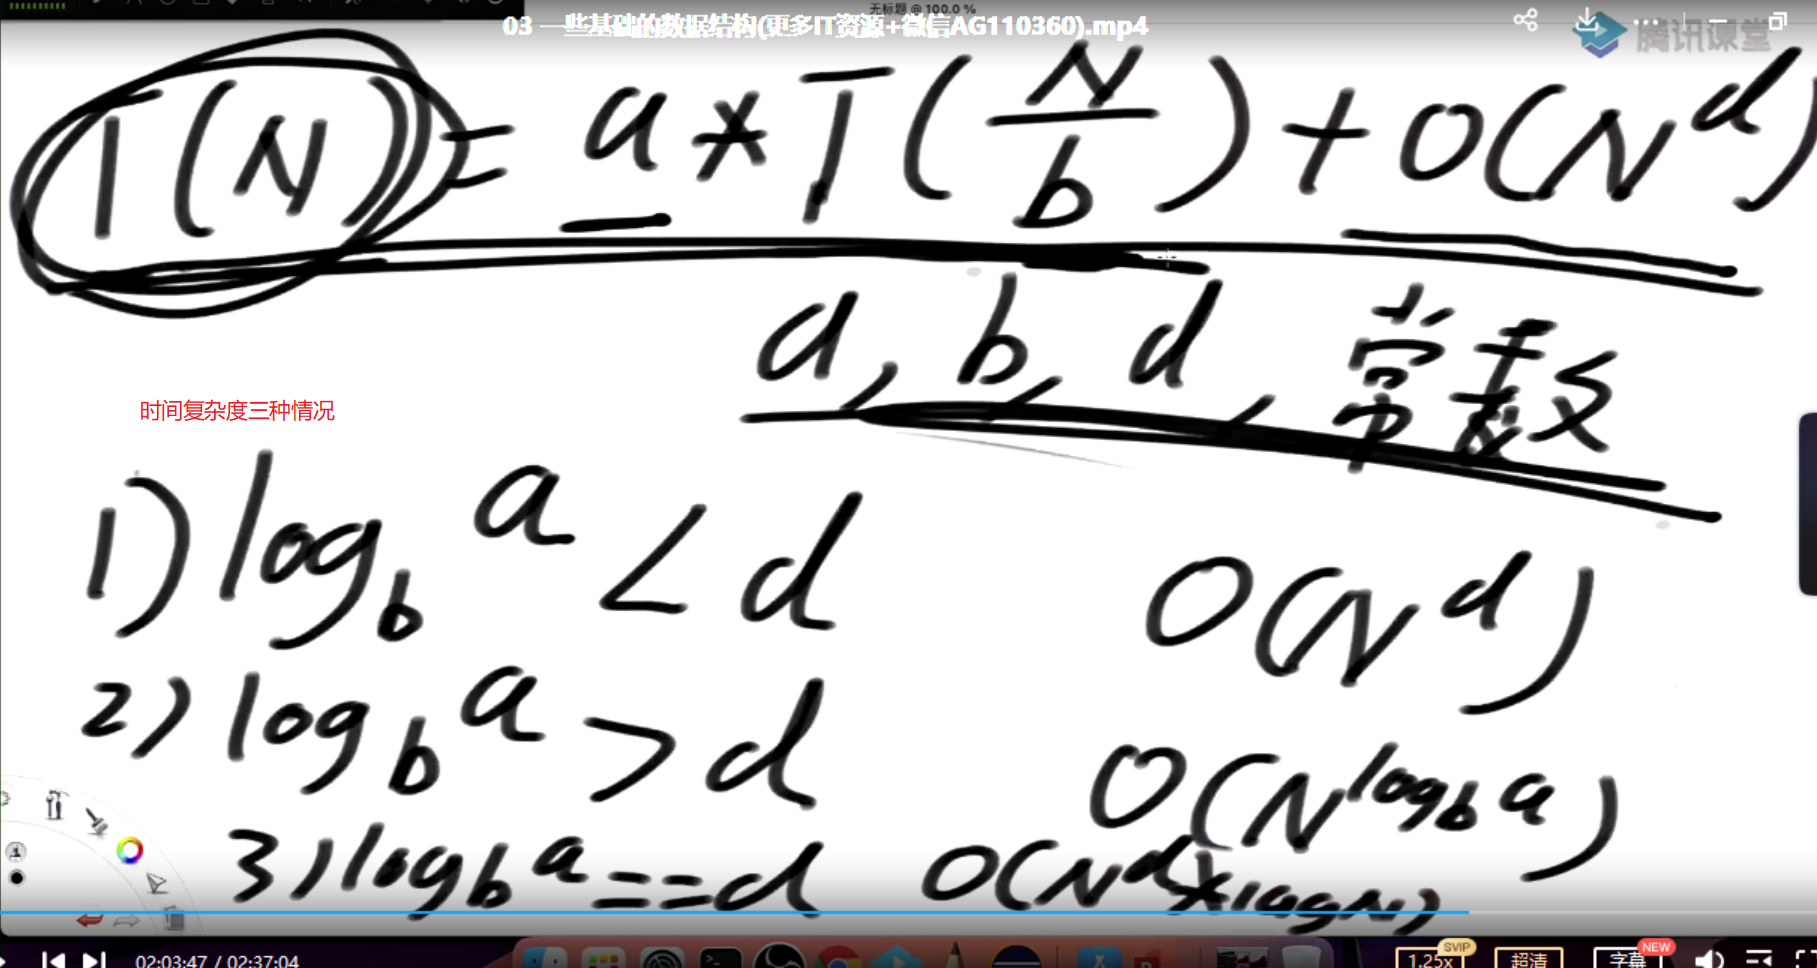 无标题 @ 100.0 %
03 一些基础的数据结构(更多IT资源+微信AG110360).mp4
腾讯课堂
T(N) = a * T(N/b) + O(N^d)
a, b, d, 常数
时间复杂度三种情况
1) log_b^a < d O(N^d)
2) log_b^a > d O(N^log_b^a)
3) log_b^a == d O(N^d * logN)
02:03:47 / 02:37:04 1.25x SVIP 超清 字幕 NEW